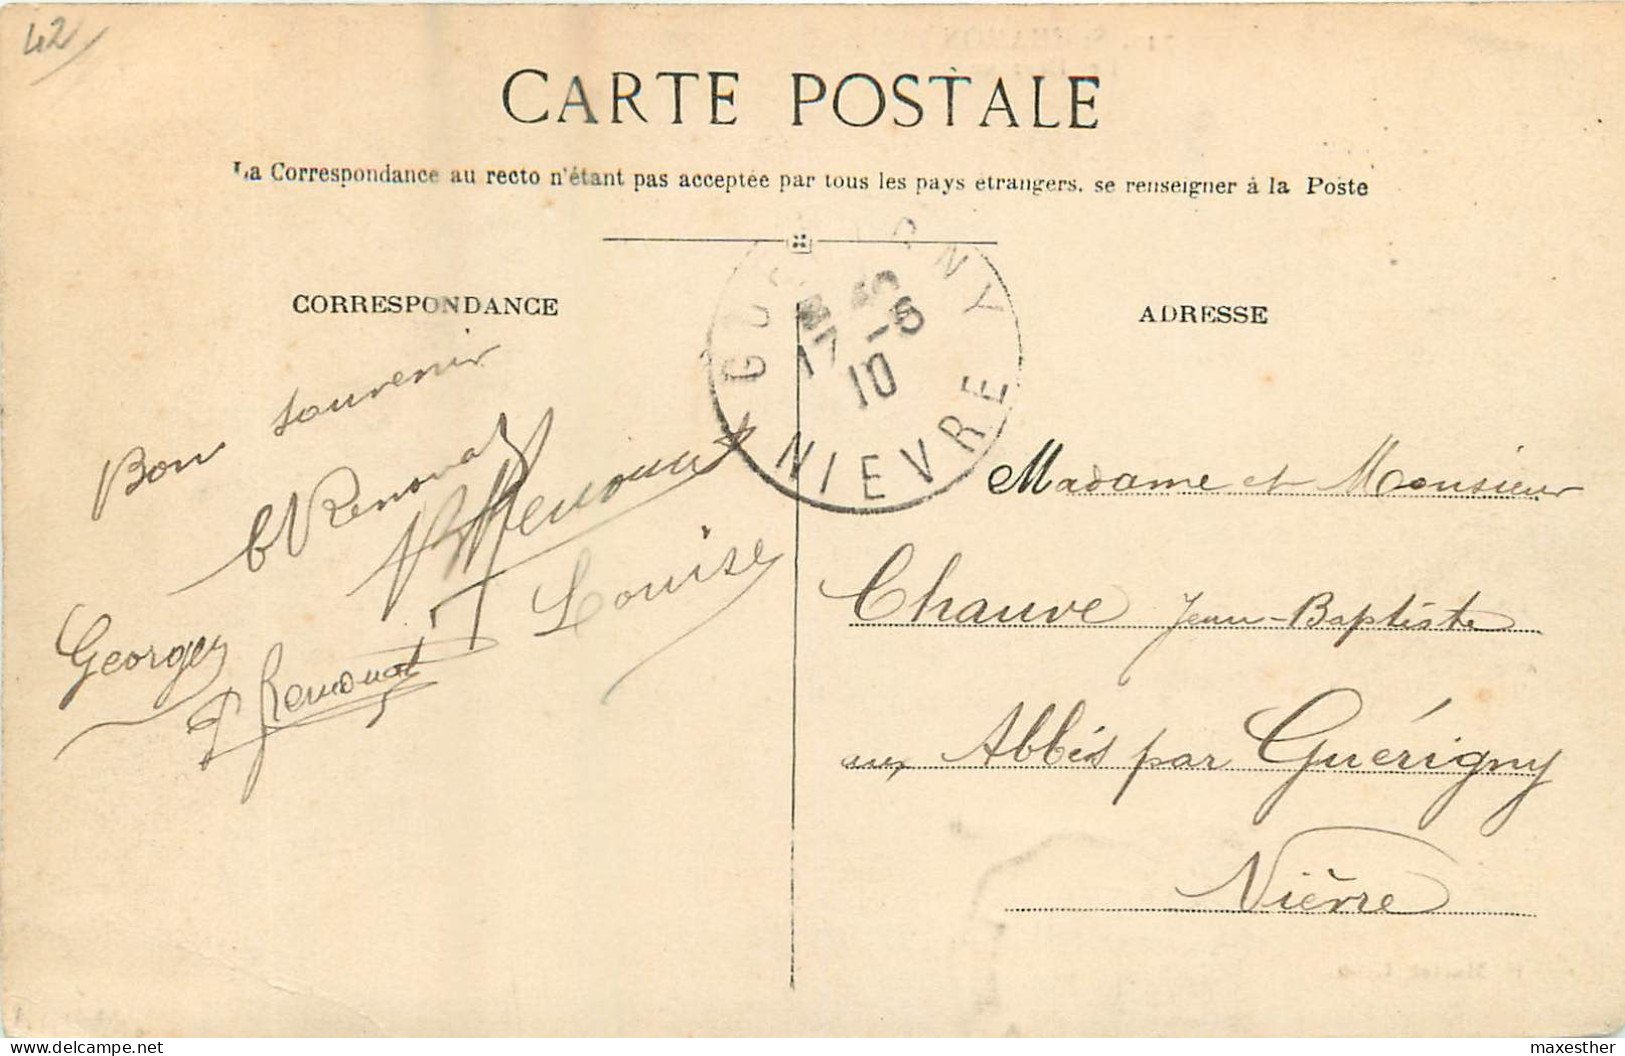 42
CARTE POSTALE
La Correspondance au recto n'étant pas acceptée par tous les pays etrangers, se renseigner à la Poste
CORRESPONDANCE
ADRESSE
17 -5
10
NIEVRE
Bon souvenir
Louise
Georges
Madame et Monsieur
Chauve Jean-Baptiste
aux Abbés par Guérigny
Nièvre
delcampe.net
maxesther